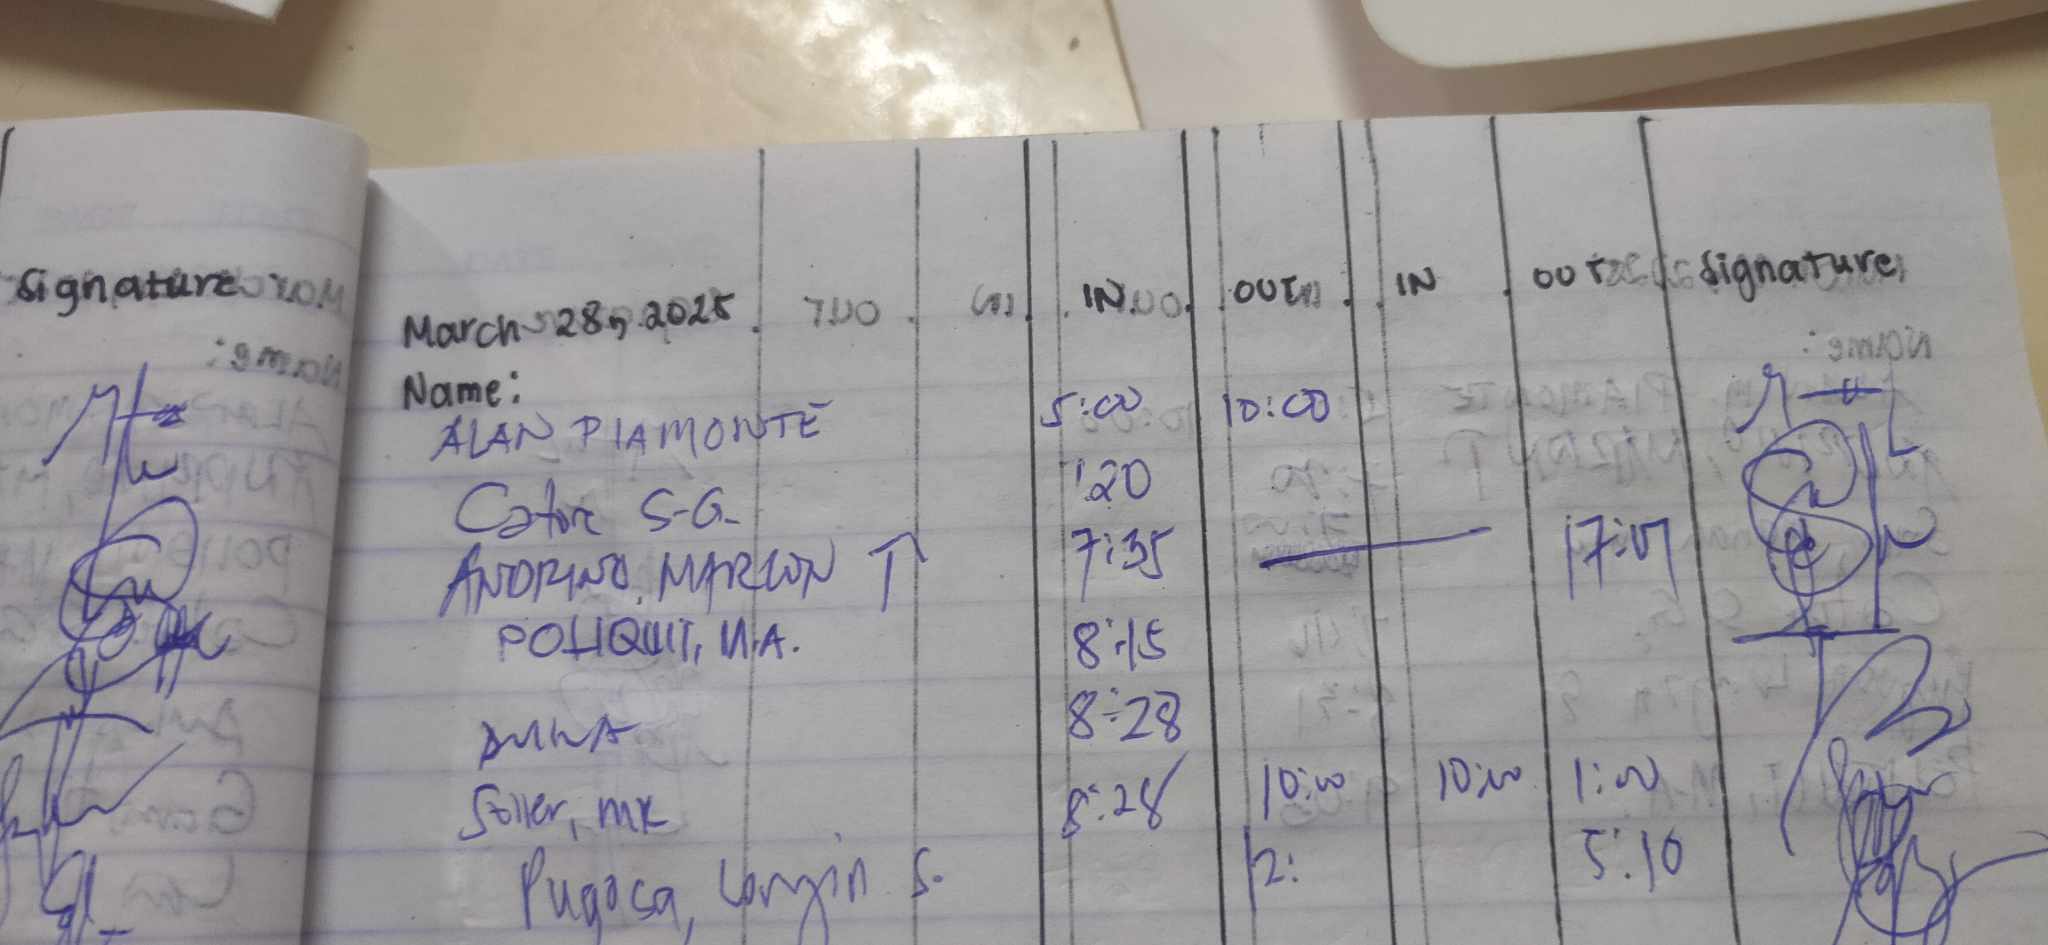 Signature
March 28, 2025 IN OUT IN OUT Signature
Name:
ALAN PIAMONTE 5:00 10:00
S.G. :20
ANDRINO, MARLON T 7:35 17:07
POLIQUIT, M.A. 8:15
8:28
Soller, MK 8:28 10:00 10:00 1:00
Pugosa, Longin S. 12: 5:10